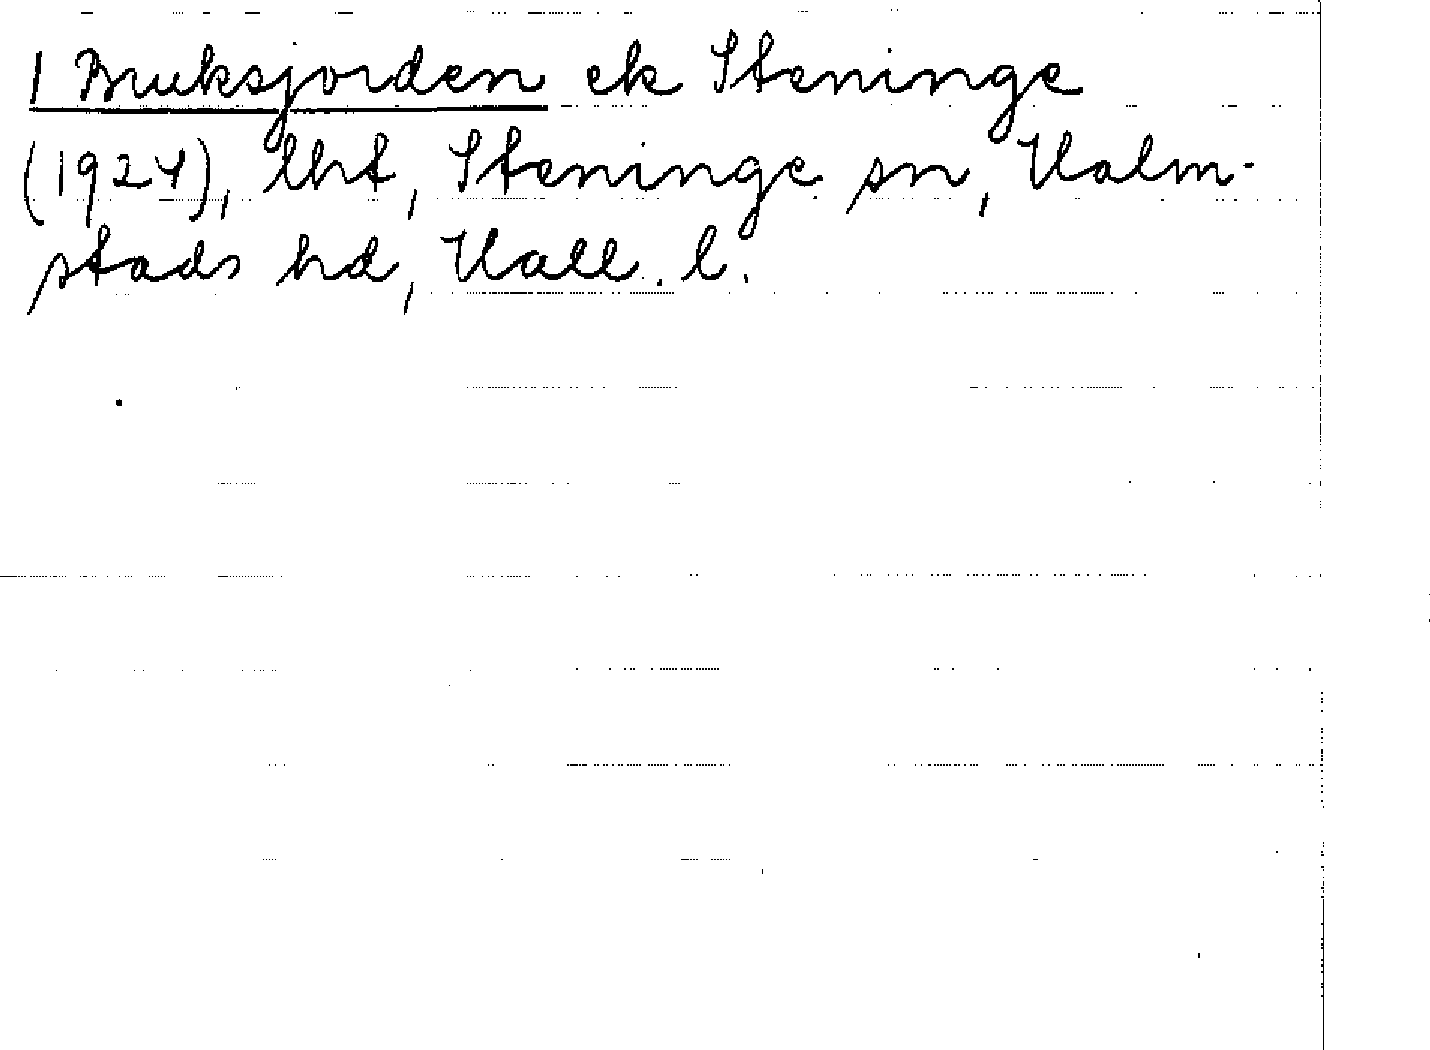 1 Bruksjorden ek Steninge
(1924), lht, Steninge sn, Halm-
stads hd, Hall. l.